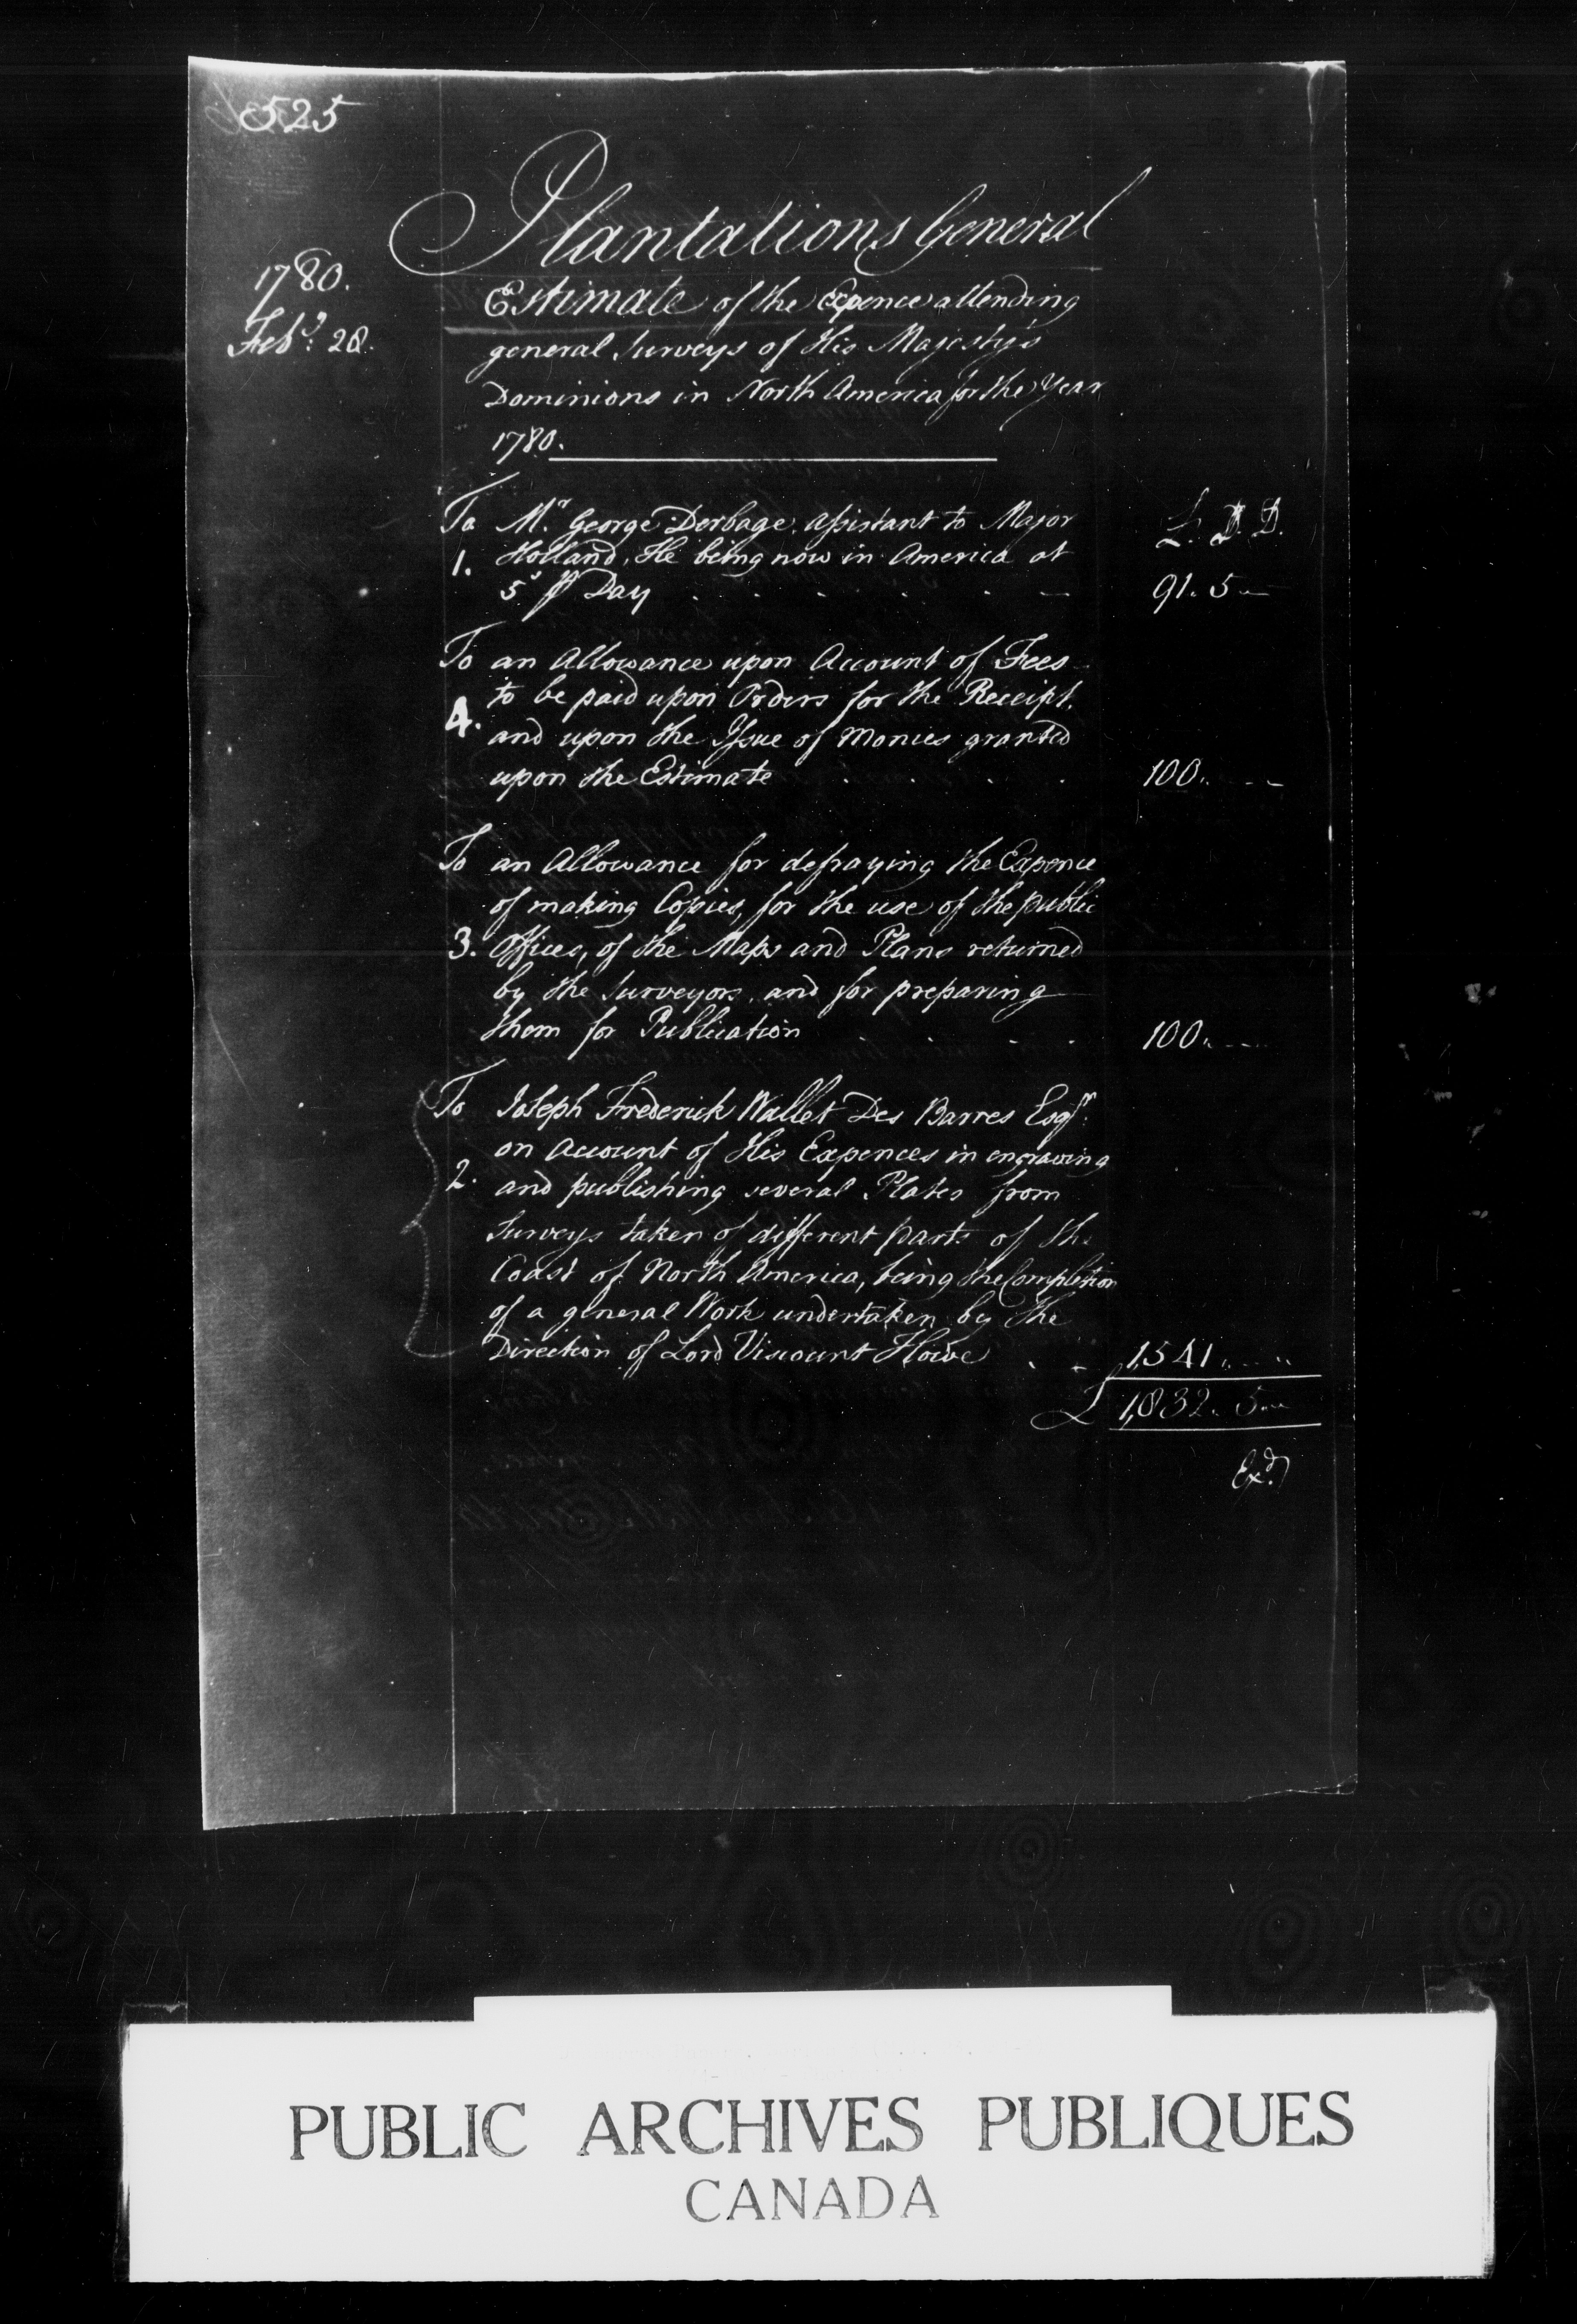 525
Plantations General
1780.
Feb.y 28.
Estimate of the Expence attending
general Surveys of His Majesty's
Dominions in North America for the Year
1780.
To Mr. George Derbage, Assistant to Major
1. Holland, He being now in America at
5s. p Day
L. S. D.
91. 5 -
To an Allowance upon Account of Fees
to be paid upon Orders for the Receipt,
4. and upon the Issue of Monies granted
upon the Estimate
100. - -
To an Allowance for defraying the Expence
of making Copies, for the use of the public
3. Offices, of the Maps and Plans returned
by the Surveyors, and for preparing
them for Publication
100. - -
To Joseph Frederick Wallet Des Barres Esqr.
on Account of His Expences in engraving
2. and publishing several Plates from
Surveys taken of different parts of the
Coast of North America, being the Completion
of a general Work undertaken by the
Direction of Lord Viscount Howe
1,541. - -
£ 1,832. 5. -
Exd.
PUBLIC ARCHIVES PUBLIQUES
CANADA